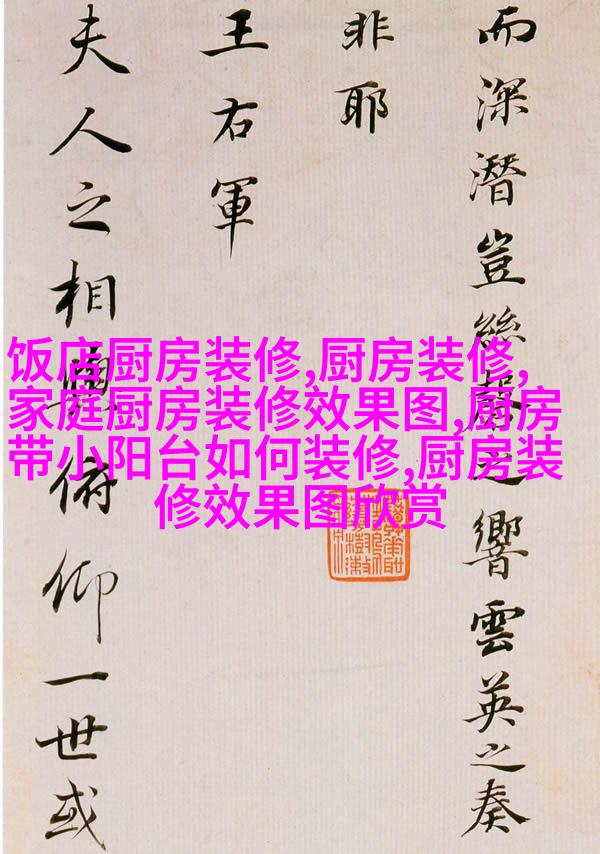 而深潛豈絲磬之響雲英之奏
非耶
王右軍
夫人之相與俯仰一世或
饭店厨房装修,厨房装修,
家庭厨房装修效果图,厨房
带小阳台如何装修,厨房装
修效果图欣赏